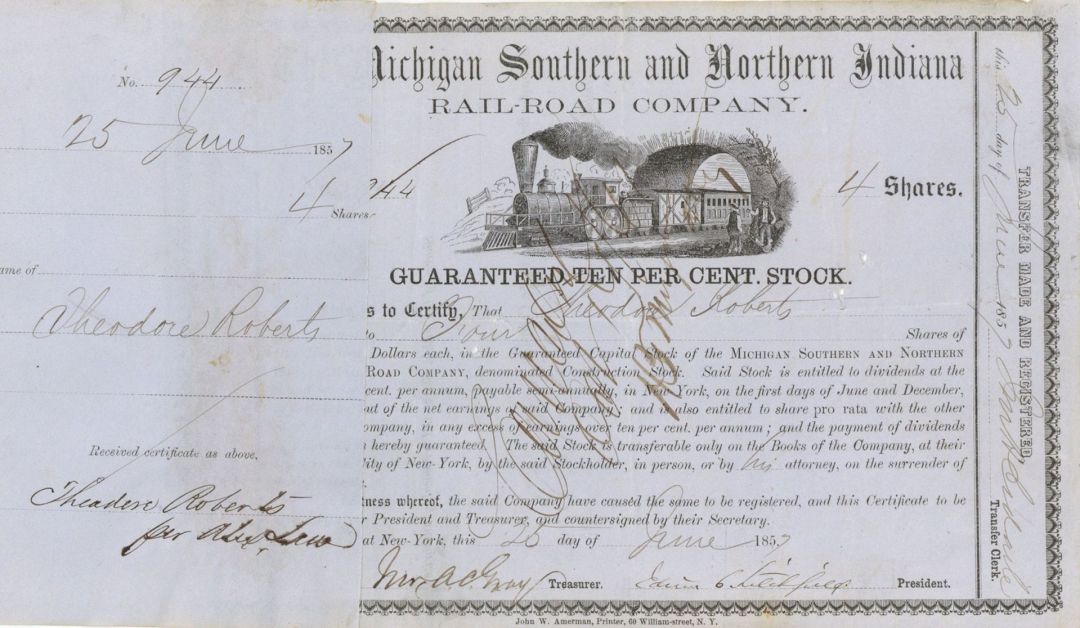 No. 944
25 June 1857
4 Shares
ame of
Theodore Roberts
Received certificate as above.
Theodore Roberts
per
Michigan Southern and Northern Indiana
RAIL-ROAD COMPANY.
944
4 Shares.
GUARANTEED TEN PER CENT. STOCK.
s to Certify, That Theodore Roberts
to Four Shares of
Dollars each, in the Guaranteed Capital Stock of the MICHIGAN SOUTHERN AND NORTHERN
ROAD COMPANY, denominated Construction Stock. Said Stock is entitled to dividends at the
cent. per annum, payable semi-annually, in New-York, on the first days of June and December,
out of the net earnings of said Company; and is also entitled to share pro rata with the other
ompany, in any excess of earnings over ten per cent. per annum; and the payment of dividends
hereby guaranteed. The said Stock is transferable only on the Books of the Company, at their
ity of New-York, by the said Stockholder, in person, or by his attorney, on the surrender of
tness whereof, the said Company have caused the same to be registered, and this Certificate to be
r President and Treasurer, and countersigned by their Secretary.
at New-York, this 25 day of June 1857
Treasurer. President.
John W. Amerman, Printer, 60 William-street, N. Y.
TRANSFER MADE AND REGISTERED
this 25 day of June 1857
Transfer Clerk.